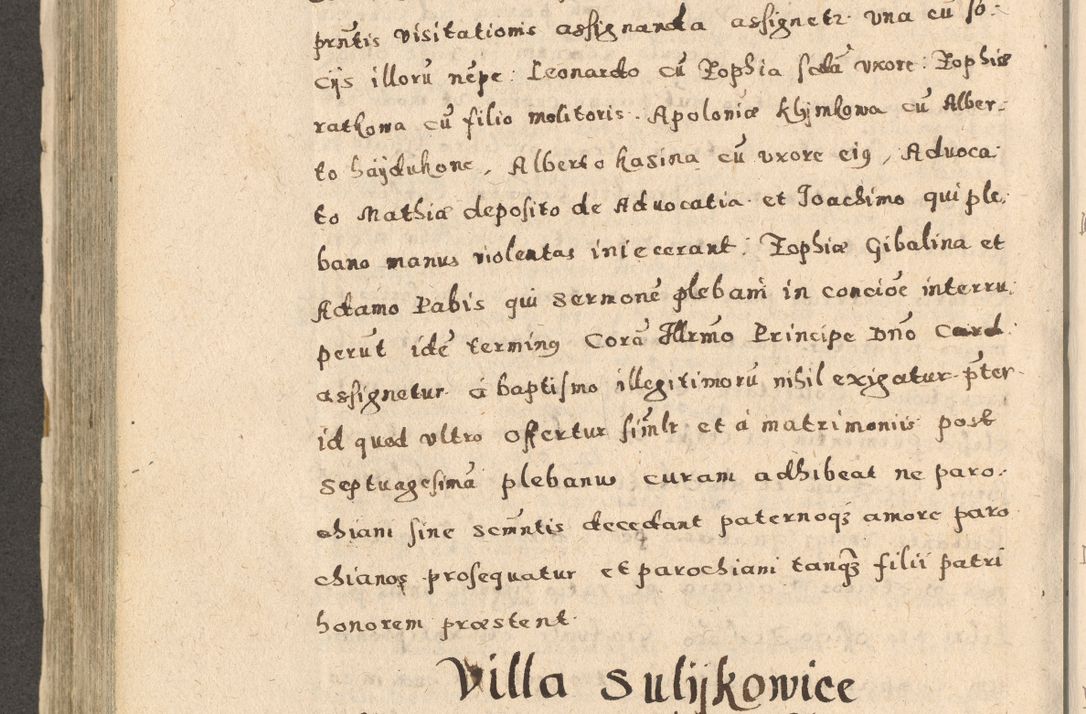 prñtis visitationis assignanda assignetr una cū so-
cijs illorū nēpe: Leonardo cū Zophia sclā uxore: Zophiæ
ratkowa cū filio molitoris. Apoloniæ klijmkowa cū Alber-
to haÿdukone, Alberto kasina cū uxore eiꝯ, Advoca-
to Mathiæ deposito de Advocatia et Joachimo qui ple-
bano manus violentas iniecerant: Zophiæ Gibalina et
Adamo Pabis qui sermonē plebani in concioē interru-
perūt idē terminꝯ Corā Illrmo Principe Dño Card:
assignetur á baptismo illegitimorū nihil exigatur p̄ter
id quod ultro offertur simlr et á matrimoniis post
septuagesimā plebanus curam adhibeat ne paro-
chiani sine scm̄ntis decedant paternoqꝫ amore paro
chianos prosequatur et parochiani tanqꝫ filii patri
honorem præstent.
Villa Sulijkowice